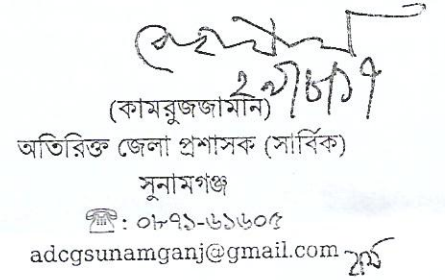 (কামরুজজামান)
অতিরিক্ত জেলা প্রশাসক (সার্বিক)
সুনামগঞ্জ
☎: ০৮৭১-৬১৬০৫
adcgsunamganj@gmail.com